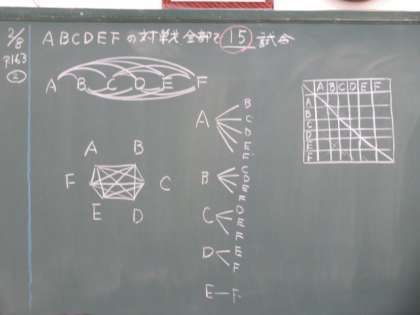 2/8
P163
②
ABCDEFの対戦全部で15試合
A B C D E F
A B
F C
E D
A B
C
D
E
F
B C
D
E
F
C D
E
F
D E
F
E F
A B C D E F
A
B
C
D
E
F